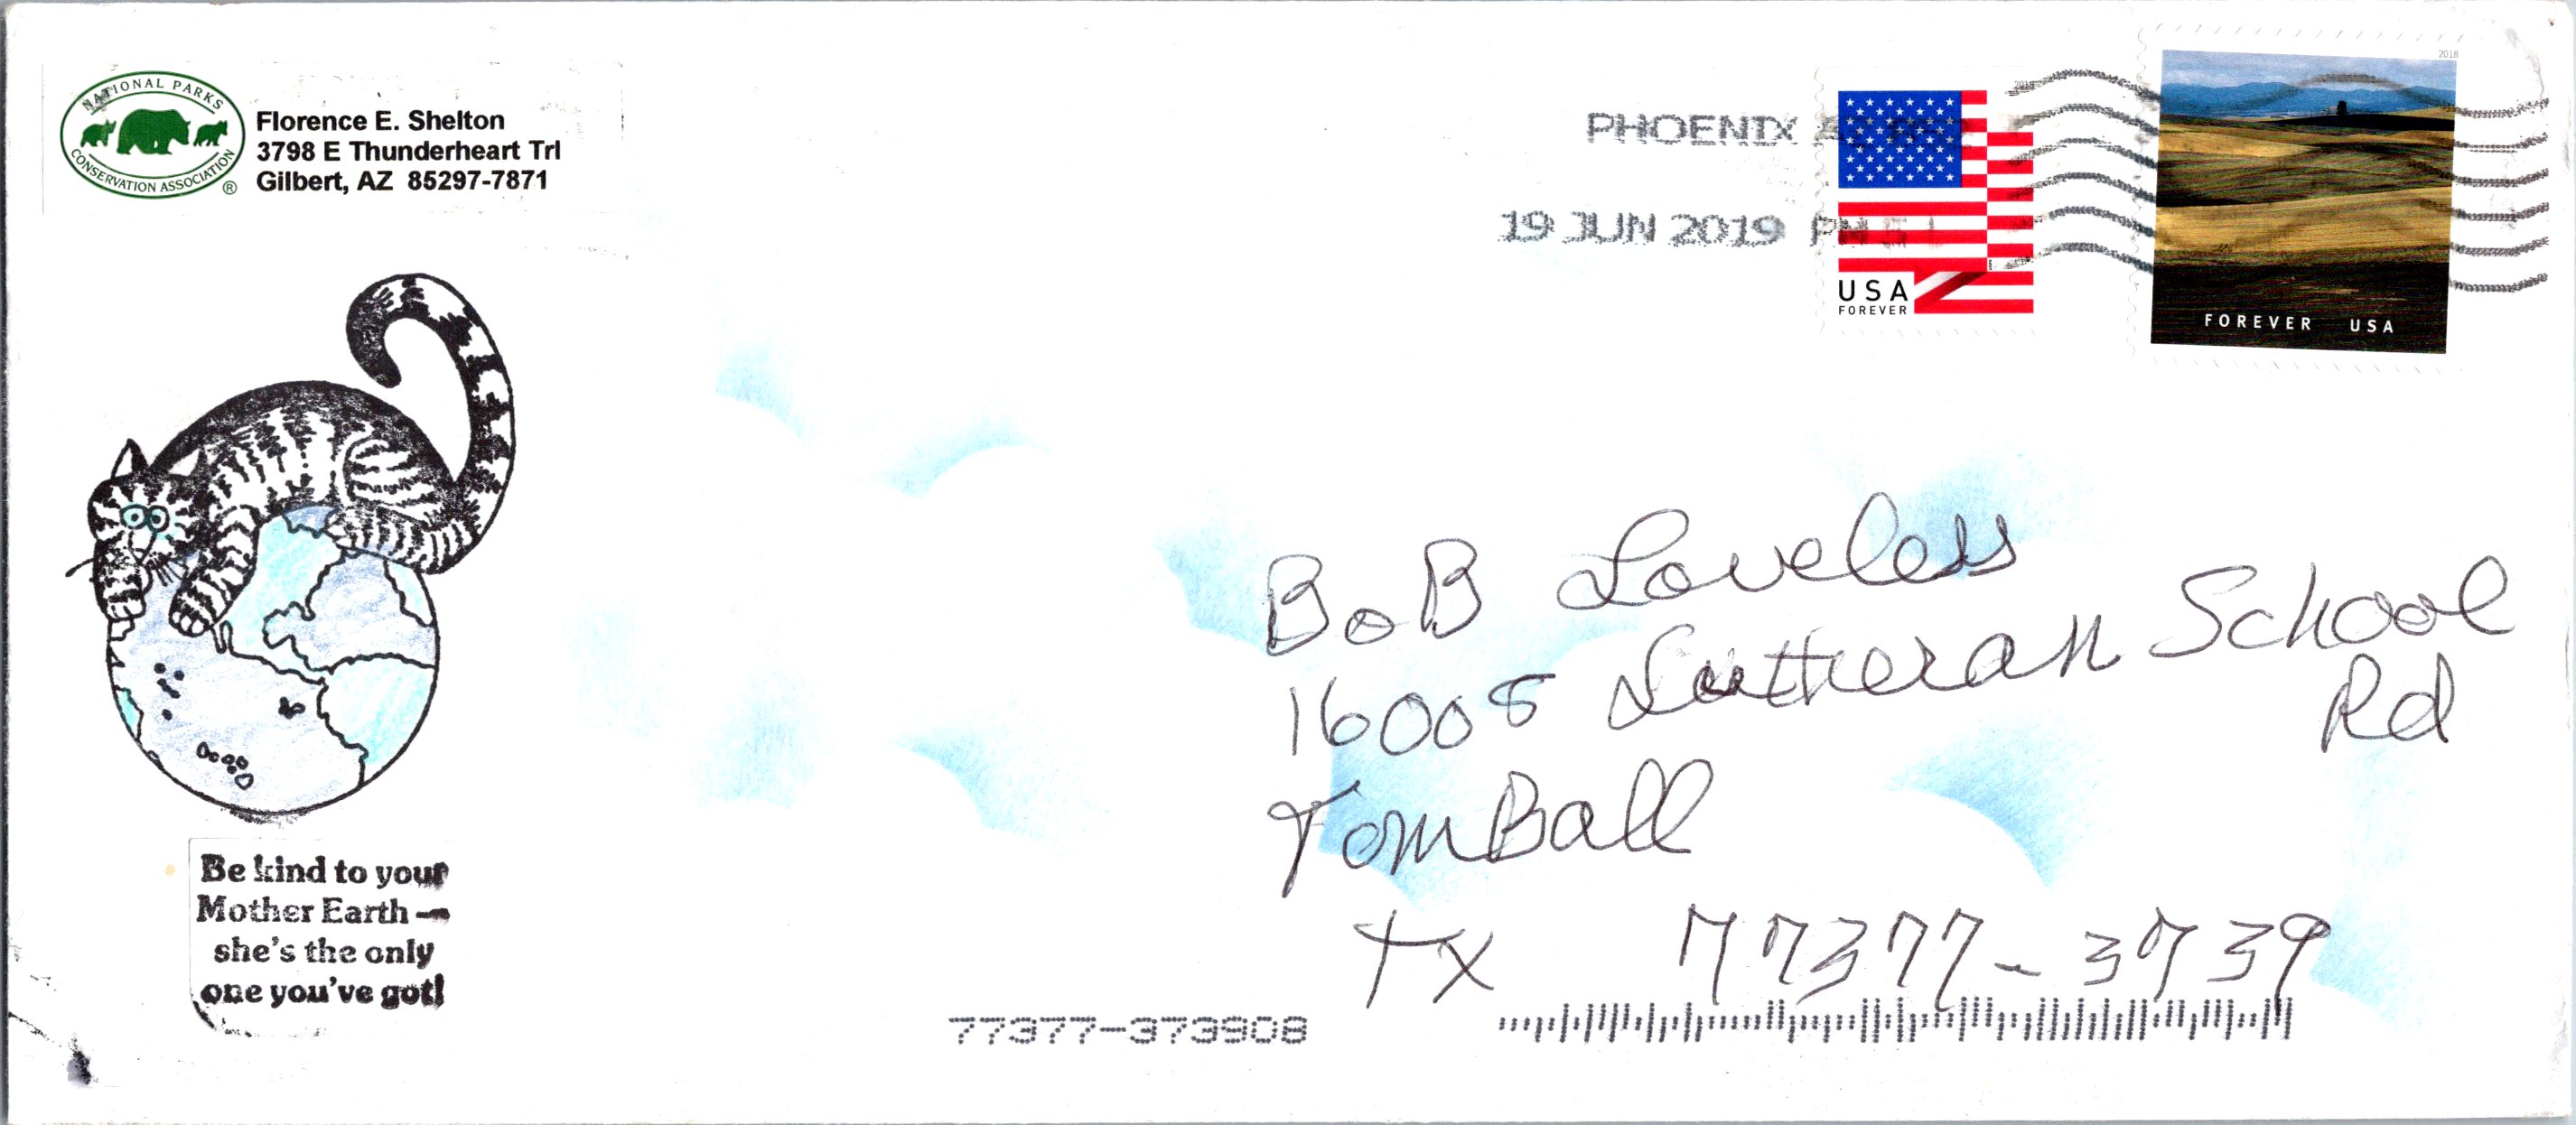 NATIONAL PARKS
CONSERVATION ASSOCIATION®
Florence E. Shelton
3798 E Thunderheart Trl
Gilbert, AZ 85297-7871
PHOENIX
19 JUN 2019 PM 5 L
USA
FOREVER
2018
FOREVER USA
BoB Loveless
16008 Lutheran School
Rd
TomBall
TX 77377-3739
Be kind to your
Mother Earth —
she's the only
one you've got!
77377-373908